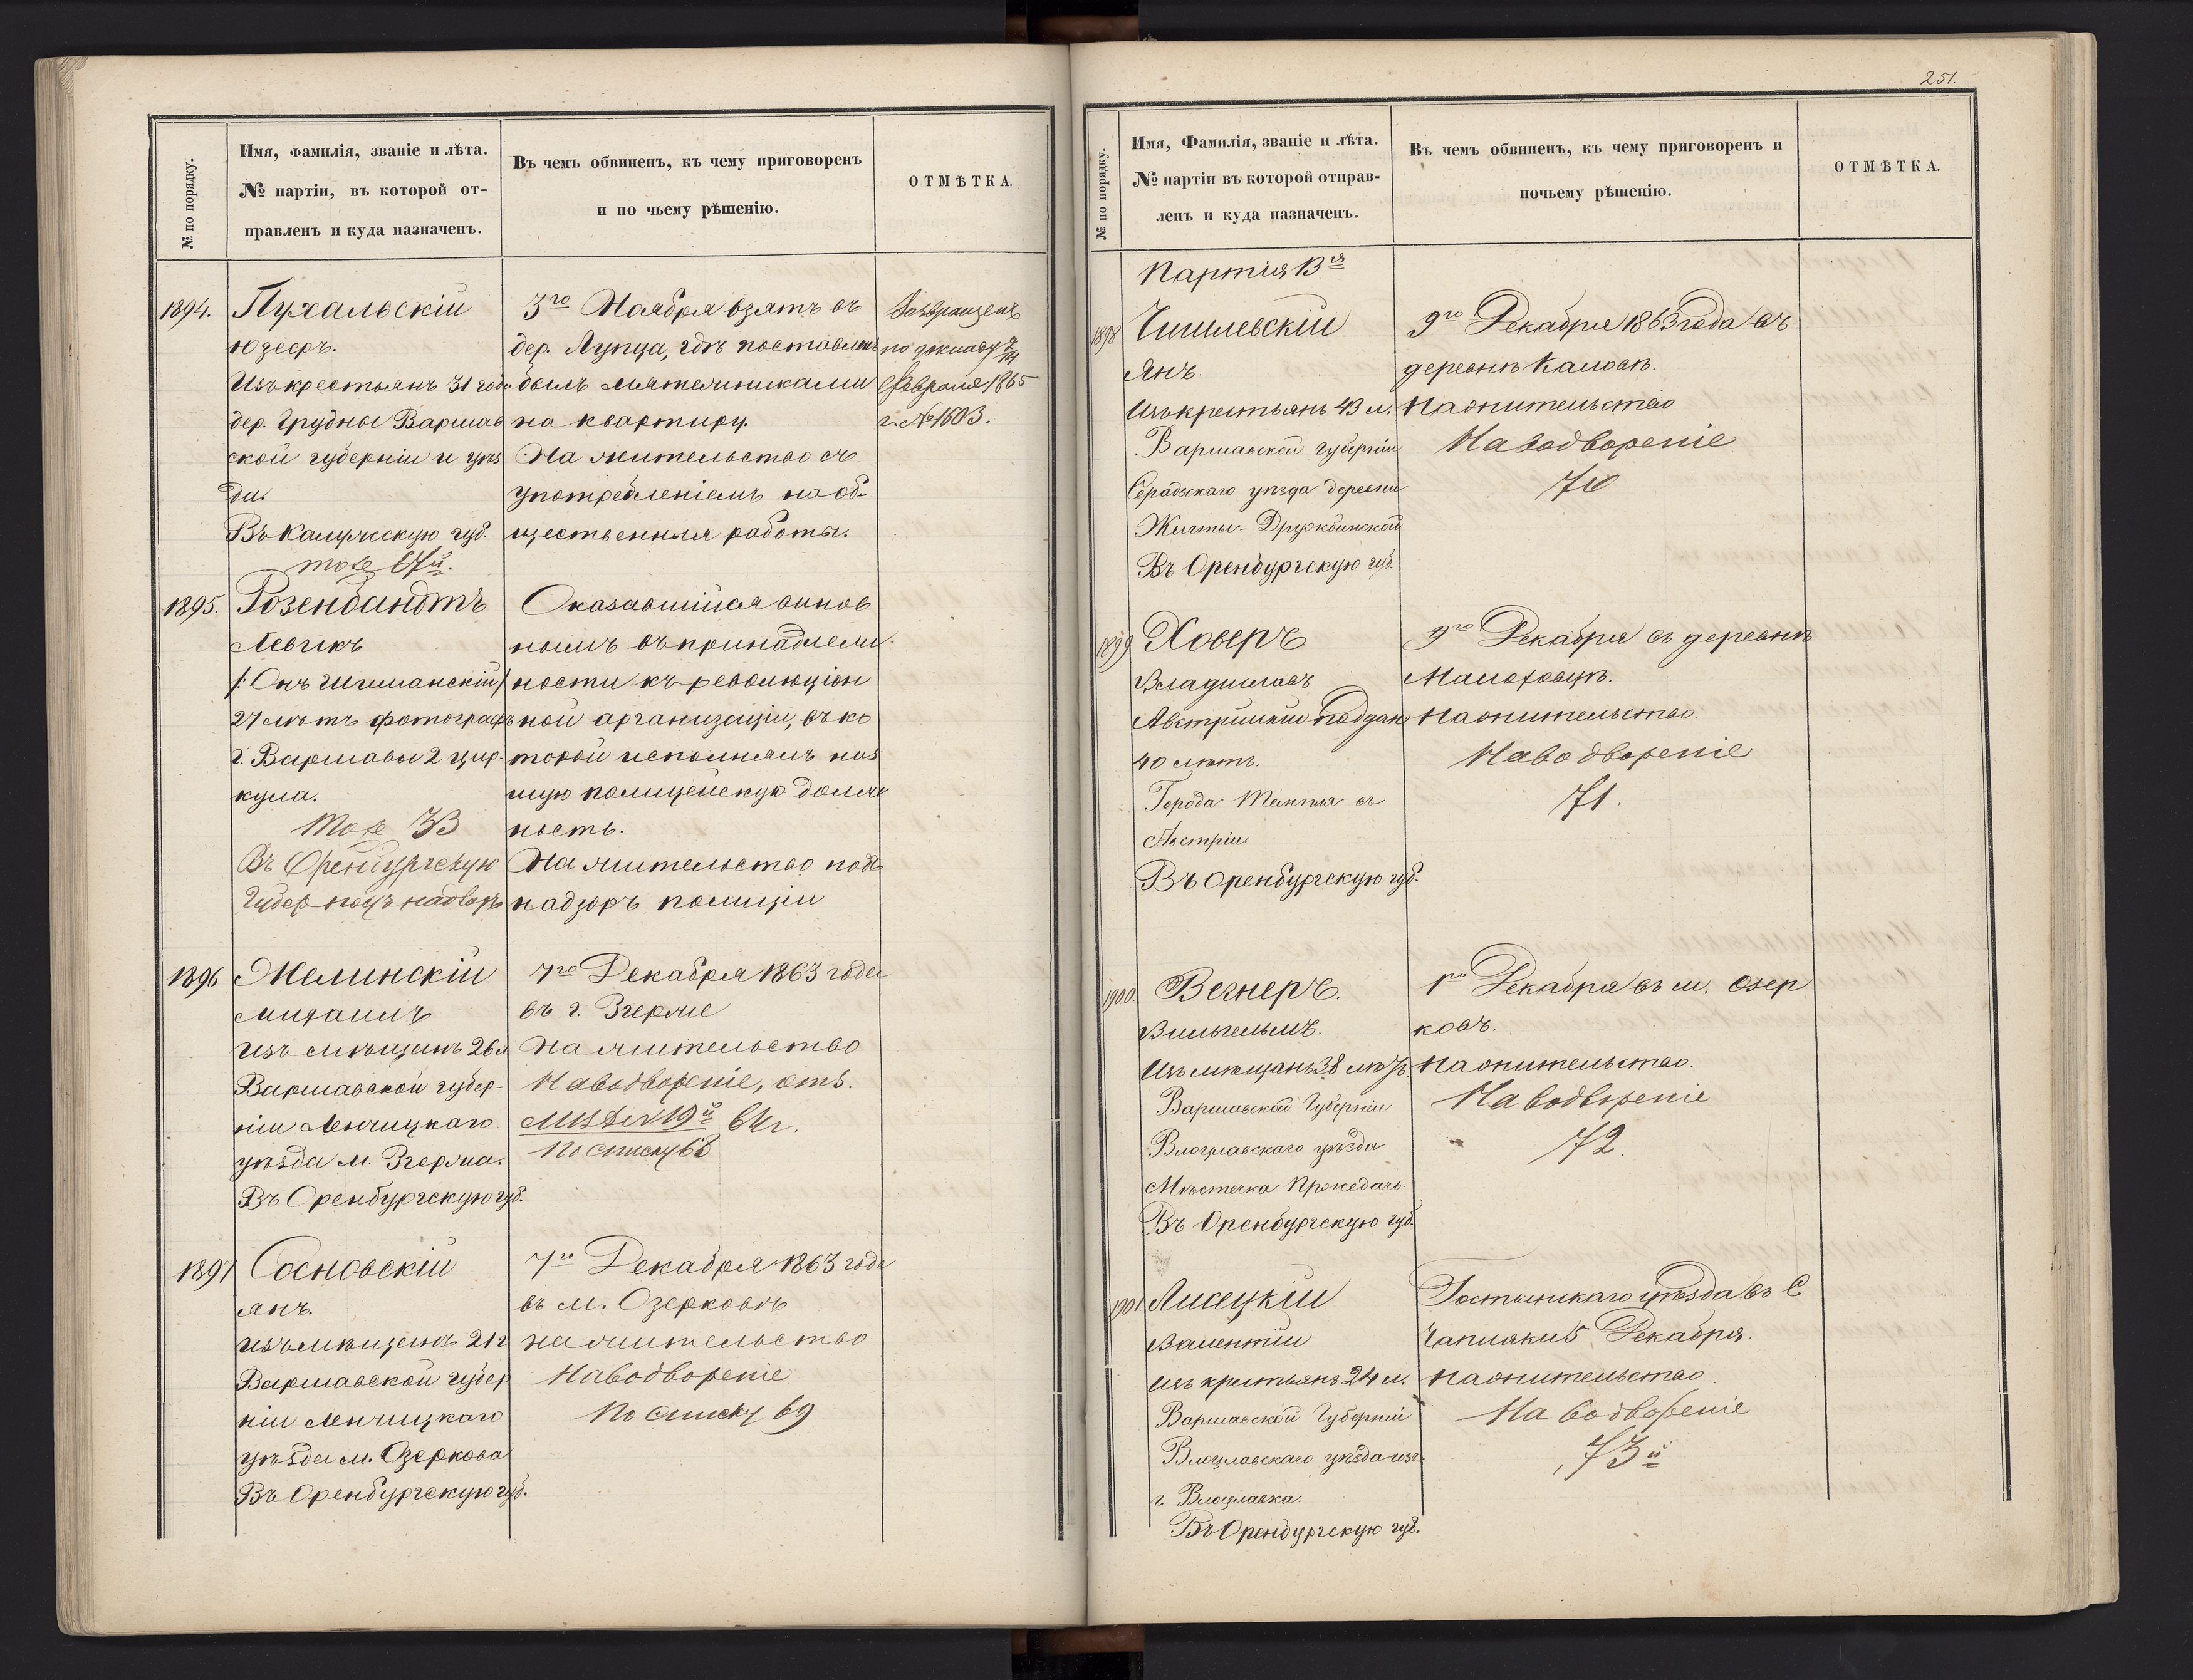 № по порядку.
Имя, Фамилія, званіе и лѣта.
№ партіи, въ которой от-
правленъ и куда назначенъ.
Въ чемъ обвиненъ, къ чему приговоренъ
и по чьему рѣшенію.
ОТМѢТКА.
1894.
Пухальскій
Юзефъ.
Изъ крестьянъ 31 года
дер. Грудны Варшав
ской губерніи и уѣз
да.
Въ Калужскую губ.
тоже 67й.
3го Ноября взятъ въ
дер. Лупца, гдѣ поставленъ
былъ мятежниками
на квартиру.
На жительство съ
употребленіемъ на об-
щественныя работы.
Возвращенъ
по докладу 2/14
Февраля 1865
г. № 1603.
1895.
Розенбандтъ
Левикъ
/: Онъ Шиманскій /
27 лѣтъ фотографъ
г. Варшавы 2 цир-
кула.
Тоже 33
Въ Оренбургскую
Губер подъ надзоръ
Оказавшійся винов
нымъ въ принадлеж-
ности къ революціон
ной организаціи, въ ко
торой исполнялъ низ
шую полицейскую долж
ность.
На жительство подъ
надзоръ полиціи
1896
Желинскій
Михаилъ
изъ мѣщанъ 26 л
Варшавской губер-
ніи Ленчицкаго
уѣзда м. Згержа.
Въ Оренбургскую губ.
7го Декабря 1863 года
въ г. Згерже
На жительство
На водвореніе, отъ.
19й 64 г.
По списку 68
1897
Сосновскій
Янъ.
изъ мѣщанъ 21 г
Варшавской губер
ніи Ленчицкаго
уѣзда м. Озеркова
Въ Оренбургскую губ.
7го Декабря 1863 года
въ м. Озерковѣ
на жительство
На водвореніе
По списку 69
251.
№ по порядку.
Имя, Фамилія, званіе и лѣта.
№ партіи въ которой отправ-
ленъ и куда назначенъ.
Въ чемъ обвиненъ, къ чему приговоренъ и
почьему рѣшенію.
ОТМѢТКА.
Партія 13я
1898
Чишевскій
Янъ.
Изъ крестьянъ 43 л.
Варшавской губерніи
Серадзскаго уѣзда деревни
Въ Оренбургскую губ.
9го Декабря 1863 года въ
деревнѣ Каловѣ.
На жительство
На водвореніе
70
1899
Ховеръ
Владиславъ
Австрійскій подданъ
40 лѣтъ.
Города въ
Австріи
Въ Оренбургскую губ.
9го Декабря въ деревнѣ
Малоховцѣ.
На жительство.
На водвореніе
71.
1900.
Вегнеръ.
Вильгельмъ.
Изъ мѣщанъ 38 лѣтъ.
Варшавской Губерніи
Влоцлавскаго уѣзда
Мѣстечка Пржедачъ
Въ Оренбургскую губ.
1го Декабря въ м. Озер
ковъ.
На жительство.
На водвореніе
72.
1901.
Лисецкій
Валентій
Изъ крестьянъ 24 л.
Варшавской Губерніи
Влоцлавскаго уѣзда изъ
г. Влоцлавка.
Въ Оренбургскую губ.
Гостынскаго уѣзда въ с
5 Декабря.
На жительство.
На водвореніе
73й